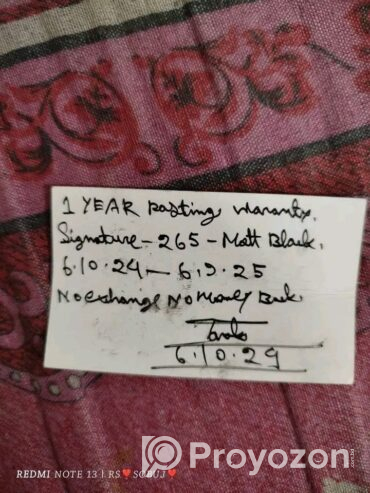 1 YEAR Pasting waranty.
Signature - 265 - Matt Black.
6.10.24 — 6.9.25
No exchange No Money Back.
6.10.24
REDMI NOTE 13 | RS❤SOBUJ❤
Proyozon